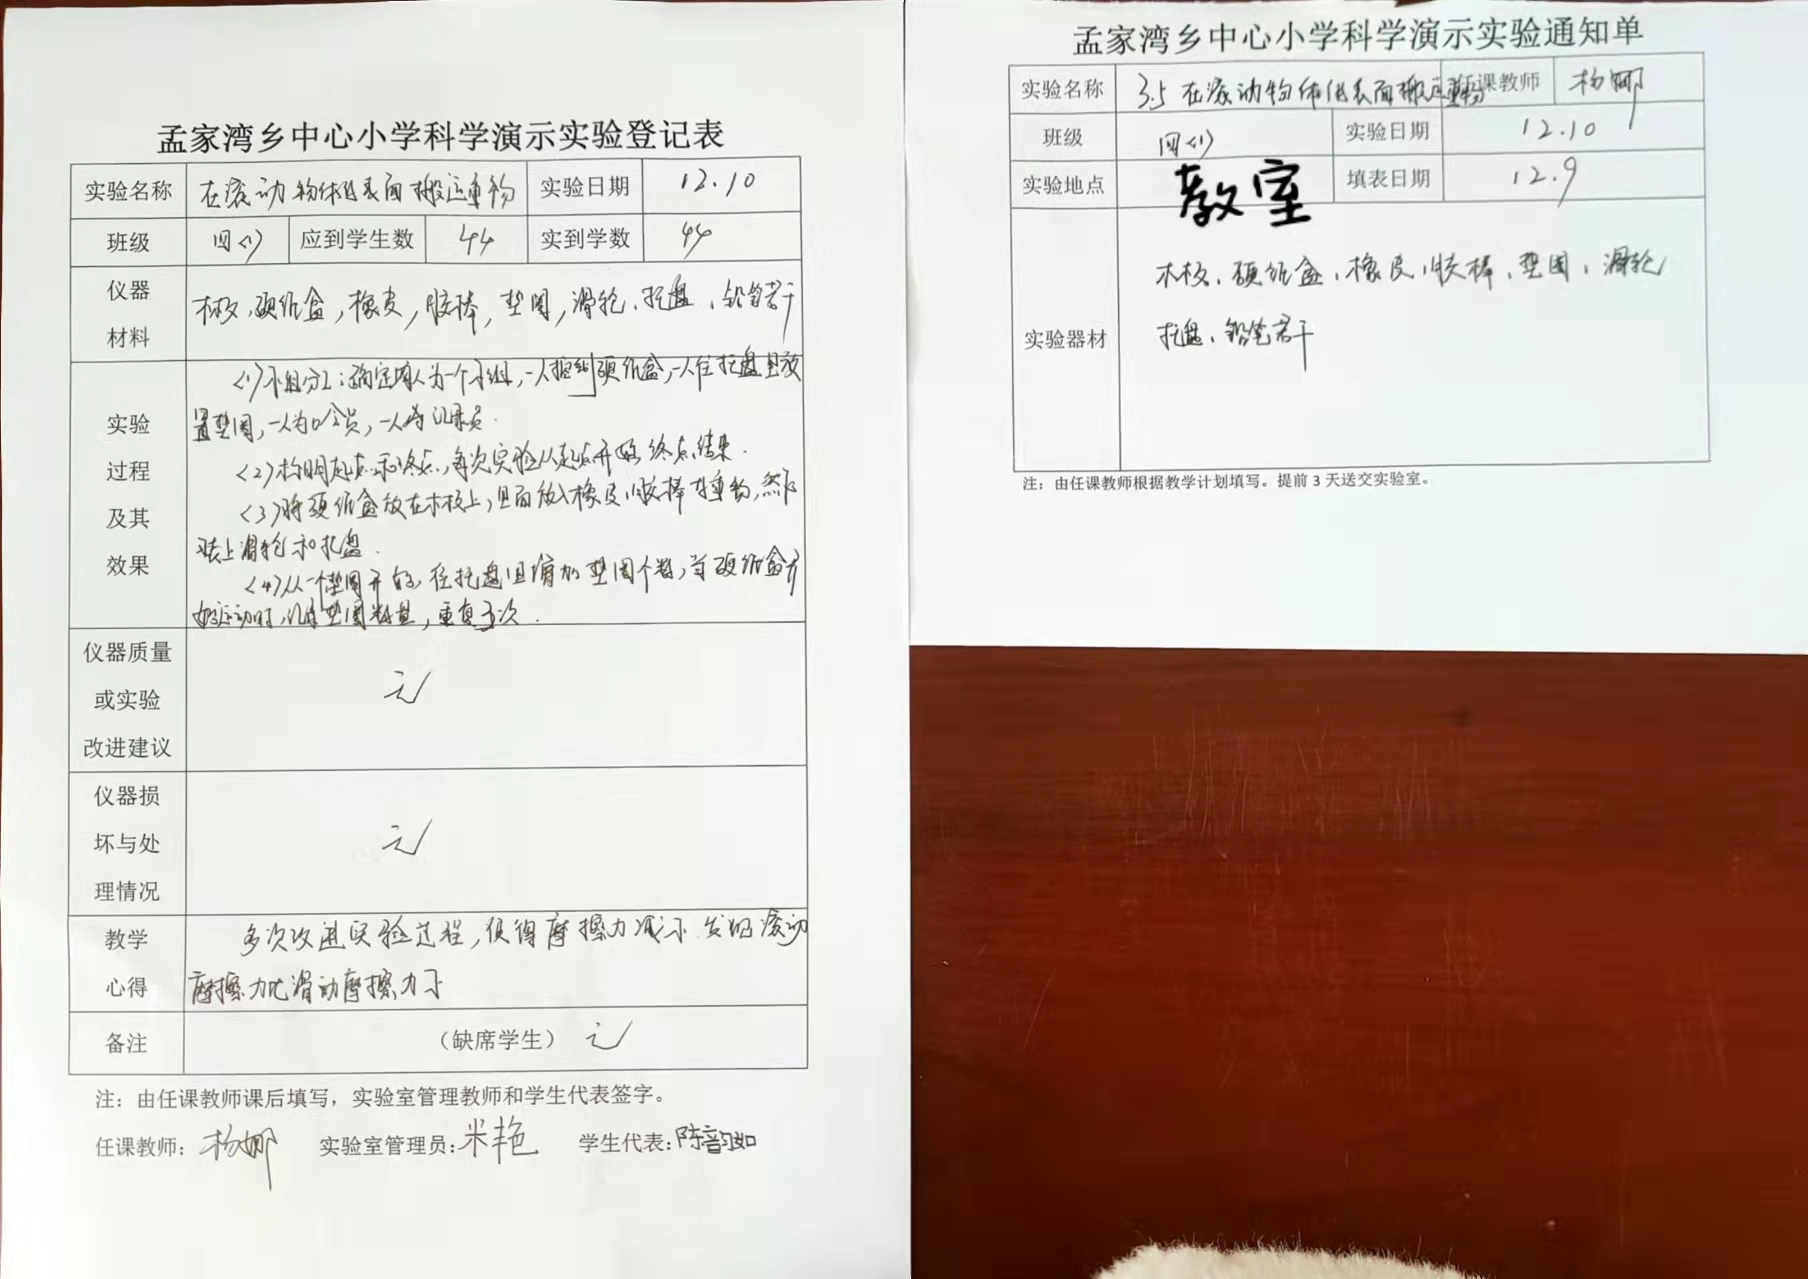 孟家湾乡中心小学科学演示实验登记表
实验名称 在滚动物体的表面搬运重物 实验日期 12.10
班级 四(1) 应到学生数 44 实到学数 44
仪器
材料
木板,硬纸盒,橡皮,胶棒,垫圈,滑轮、托盘、铅笔若干
实验
过程
及其
效果
(1)小组分工:确定四人为一个小组,一人控制硬纸盒,一人往托盘里放
置垫圈,一人为口令员,一人为记录员.
(2)标明起点和终点,每次实验从起点开始终点结束.
(3)将硬纸盒放在木板上,里面放入橡皮,胶棒等重物,然后
装上滑轮和托盘.
(4)从一个垫圈开始,往托盘里增加垫圈个数,当硬纸盒开
始运动时,记录垫圈数量,重复3次.
仪器质量
或实验
改进建议
无
仪器损
坏与处
理情况
无
教学
心得
多次改进实验过程,使得摩擦力减小 发现滚动
摩擦力比滑动摩擦力小
备注 (缺席学生) 无
注:由任课教师课后填写,实验室管理教师和学生代表签字。
任课教师: 杨娜 实验室管理员: 米艳 学生代表: 陈韵如
孟家湾乡中心小学科学演示实验通知单
实验名称 3.5 在滚动物体的表面搬运重物 任课教师 杨娜
班级 四(1) 实验日期 12.10
实验地点 教室 填表日期 12.9
实验器材
木板、硬纸盒,橡皮,胶棒,垫圈,滑轮
托盘、铅笔若干
注:由任课教师根据教学计划填写。提前 3 天送交实验室。